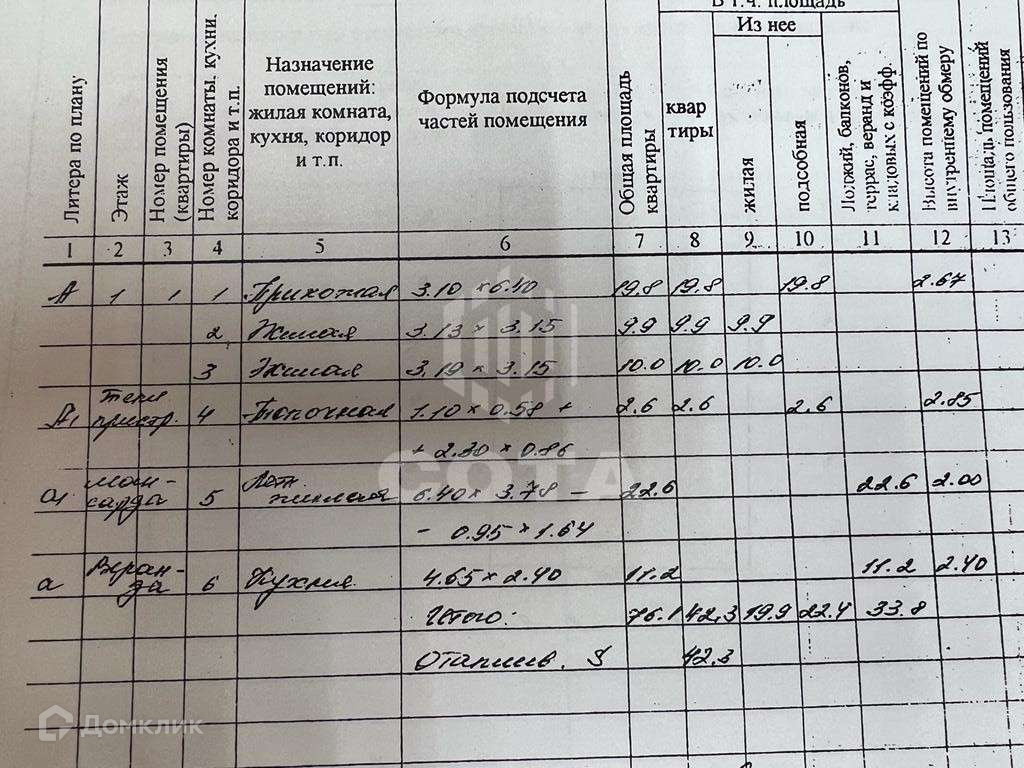 В т.ч. площадь
Из нее
Литера по плану
Этаж
Номер помещения (квартиры)
Номер комнаты. кухни. коридора и т.п.
Назначение помещений: жилая комната, кухня, коридор и т.п.
Формула подсчета частей помещения
Общая площадь квартиры
квар тиры
жилая
подсобная
Лоджий, балконов, террас, веранд и кладовых с коэфф.
Высота помещений по внутреннему обмеру
Площадь помещений общего пользования
1 2 3 4 5 6 7 8 9 10 11 12 13
А 1 1 1 Прихожая 3.10 × 6.40 19.8 19.8 19.8 2.67
2 Жилая 3.13 × 3.15 9.9 9.9 9.9
3 Жилая 3.19 × 3.15 10.0 10.0 10.0
А1 Тепл пристр. 4 Топочная 1.10 × 0.58 + 2.6 2.6 2.6 2.85
+ 2.30 × 0.86
СОТА
ман-сарда 5 Лет. жилая 6.40 × 3.78 – 22.6 22.6 2.00
- 0.95 × 1.64
а Веран-да 6 Кухня 4.65 × 2.40 11.2 11.2 2.40
Итого: 76.1 42,3 19.9 22.4 33.8
Отаплив. S 42.3
Домклик